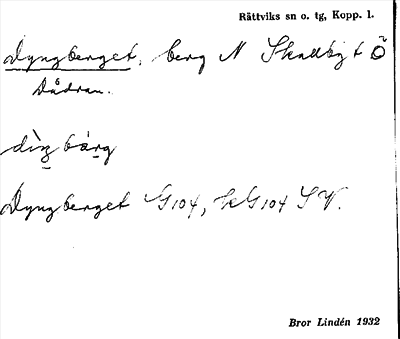 Rättviks sn o. tg, Kopp. l.
Dyngberget, berg N Skallbygt Ö
Dådran.
dìŋbárg
Dyngberget G104, kG104 SV.
Bror Lindén 1932